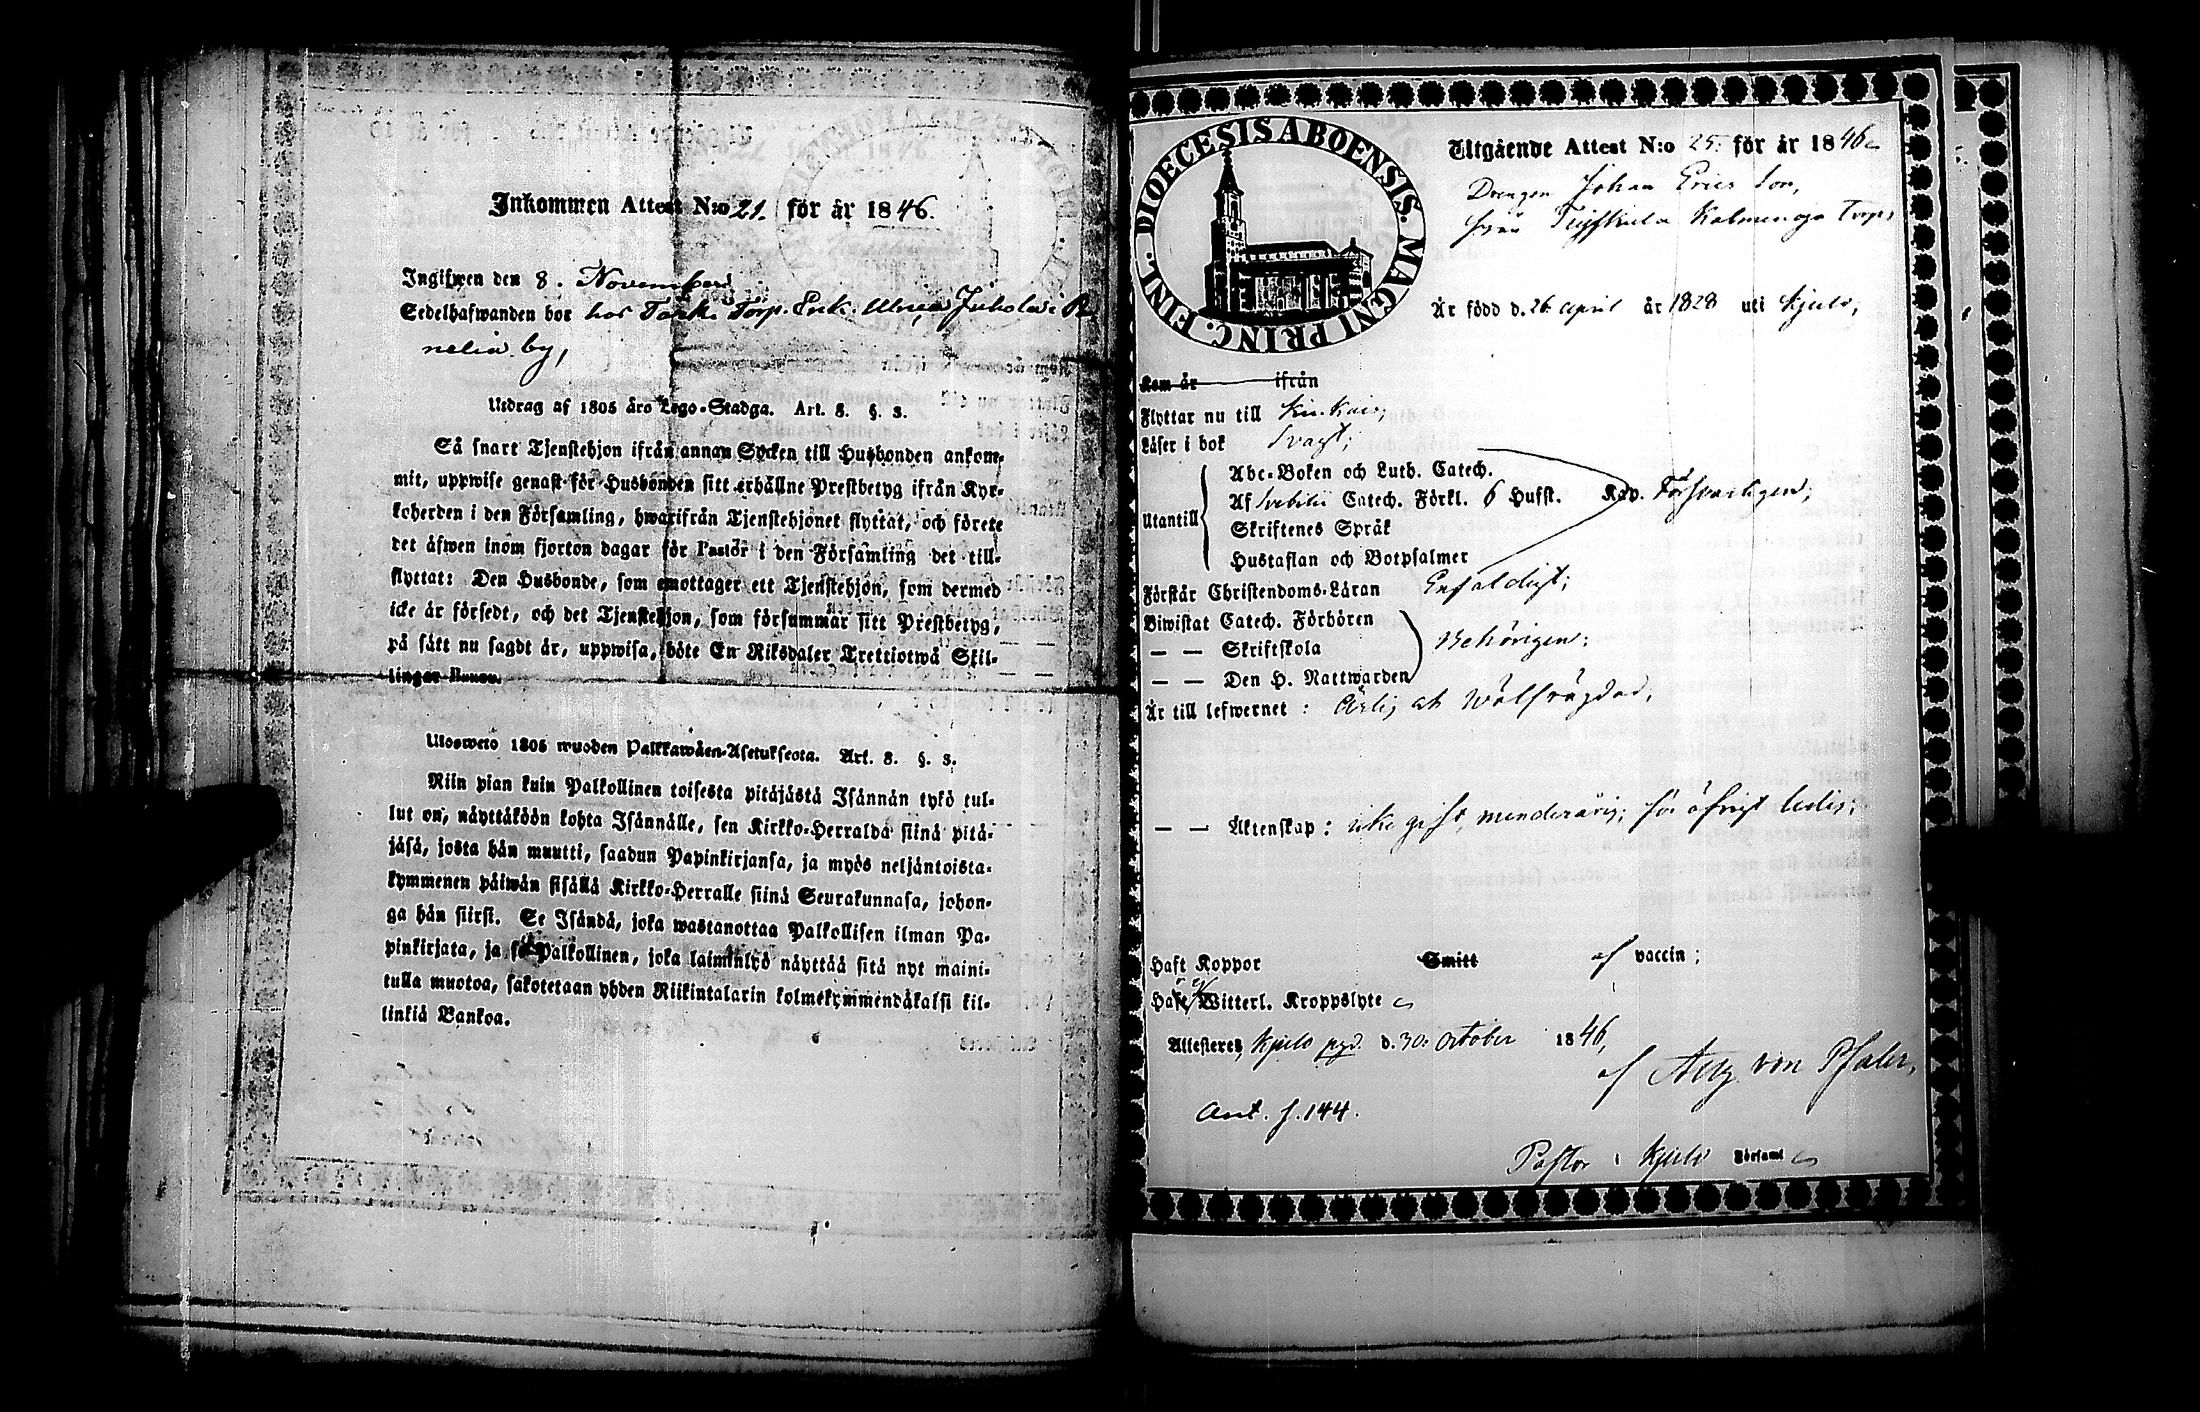 Inkommen Attest N:o 21. för år 1846.
Ingifwen den 8. November
Sedelhafwanden bor hos Torp. Enk. Ulrica Juhola i
nelia by,
Utdrag af 1805 års Lego-Stadga. Art. 8. §. 3.
Så snart Tjenstehjon ifrån annan Socken till Husbonden ankom-
mit, uppwise genast för Husbonden sitt erhållne Prestbetyg ifrån Kyr-
koherden i den Församling, hwarifrån Tjenstehjonet flyttat, och förete
det äfwen inom fjorton dagar för Pastor i den Församling det till-
flyttat: Den Husbonde, som emottager ett Tjenstehjon, som dermed
icke är försedt, och det Tjenstehjon, som försummar sitt Prestbetyg,
på sätt nu sagdt är, uppwisa, böte En Riksdaler Trettiotwå Skil-
lingar Banco.
Ulosweto 1805 wuoden Palkkawäen-Asetuksesta. Art. 8. §. 3.
Niin pian kuin Palkollinen toisesta pitäjästä Isännän tykö tul-
lut on, näyttäköön kohta Isännälle, sen Kirkko-Herralda siinä pitä-
jäsä, josta hän muutti, saadun Papinkirjansa, ja myös neljäntoista-
kymmenen päiwän sisällä Kirkko-Herralle siinä Seurakunnasa, johon-
ga hän siirsi. Se Isändä, joka wastanottaa Palkollisen ilman Pa-
pinkirjata, ja se Palkollinen, joka laiminlyö näyttää sitä nyt maini-
tulla muotoa, sakotetaan yhden Riikintalarin kolmekymmendäkaksi kil-
linkiä Bankoa.
DIOECESIS ABOENSIS. MAGNI PRINC. FINL.
Utgående Attest N:o 25. för år 1846
Drengen Johan Ericsson,
från Kalmenoja Torp
Är född d. 26 April år 1828 uti Kjulo,
Kom år ifrån
Flyttar nu till Kiukais,
Läser i bok Svagt;
Abc-Boken och Luth. Catech.
Utantill Af Svebilii Catech. Förkl. 6 Hufst. Försvarligen;
Skriftenes Språk
Hustaflan och Botpsalmer
Förstår Christendoms-Läran Enfaldigt;
Biwistat Catech. Förhören
— — Skriftskola Behörigen;
— — Den H. Nattwarden
Är till lefwernet: Ärlig och Wälfrägdad,
— — Äktenskap: icke gift, minderårig; för öfrigt ledig;
Haft Koppor Smitt af vaccin;
Haft ej Witterl. Kroppslyte
Attesteres, Kjulo pgd. d. 30 October 1846,
af Aug von Pfaler,
Ant. f. 144.
Pastor i Kjulo Församl